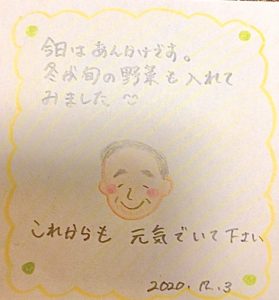 今日はあんかけです。
冬が旬の野菜も入れて
みました
これからも 元気でいて下さい
2020.12.3